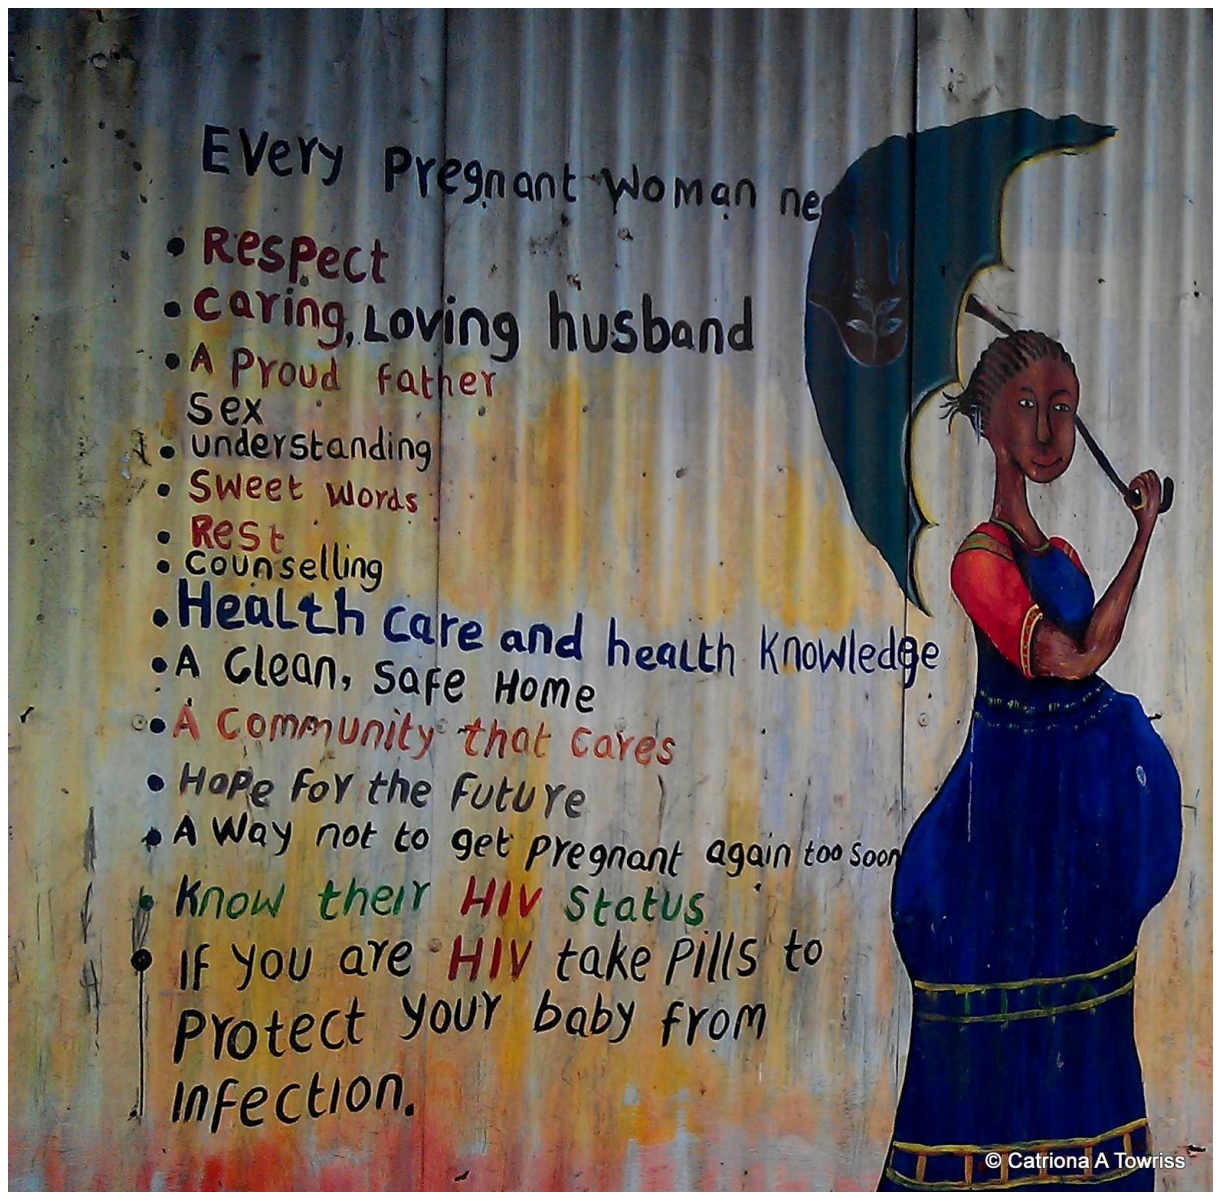 Every Pregnant Woman ne
• Respect
• Caring, Loving husband
• A Proud father
Sex
• understanding
• Sweet words
• Rest
• Counselling
• Health care and health knowledge
• A Clean, Safe Home
• A Community that cares
• Hope For the Future
• A Way not to get pregnant again too soon
• Know their HIV Status
• If you are HIV take Pills to
Protect your baby from
infection.
© Catriona A Towriss